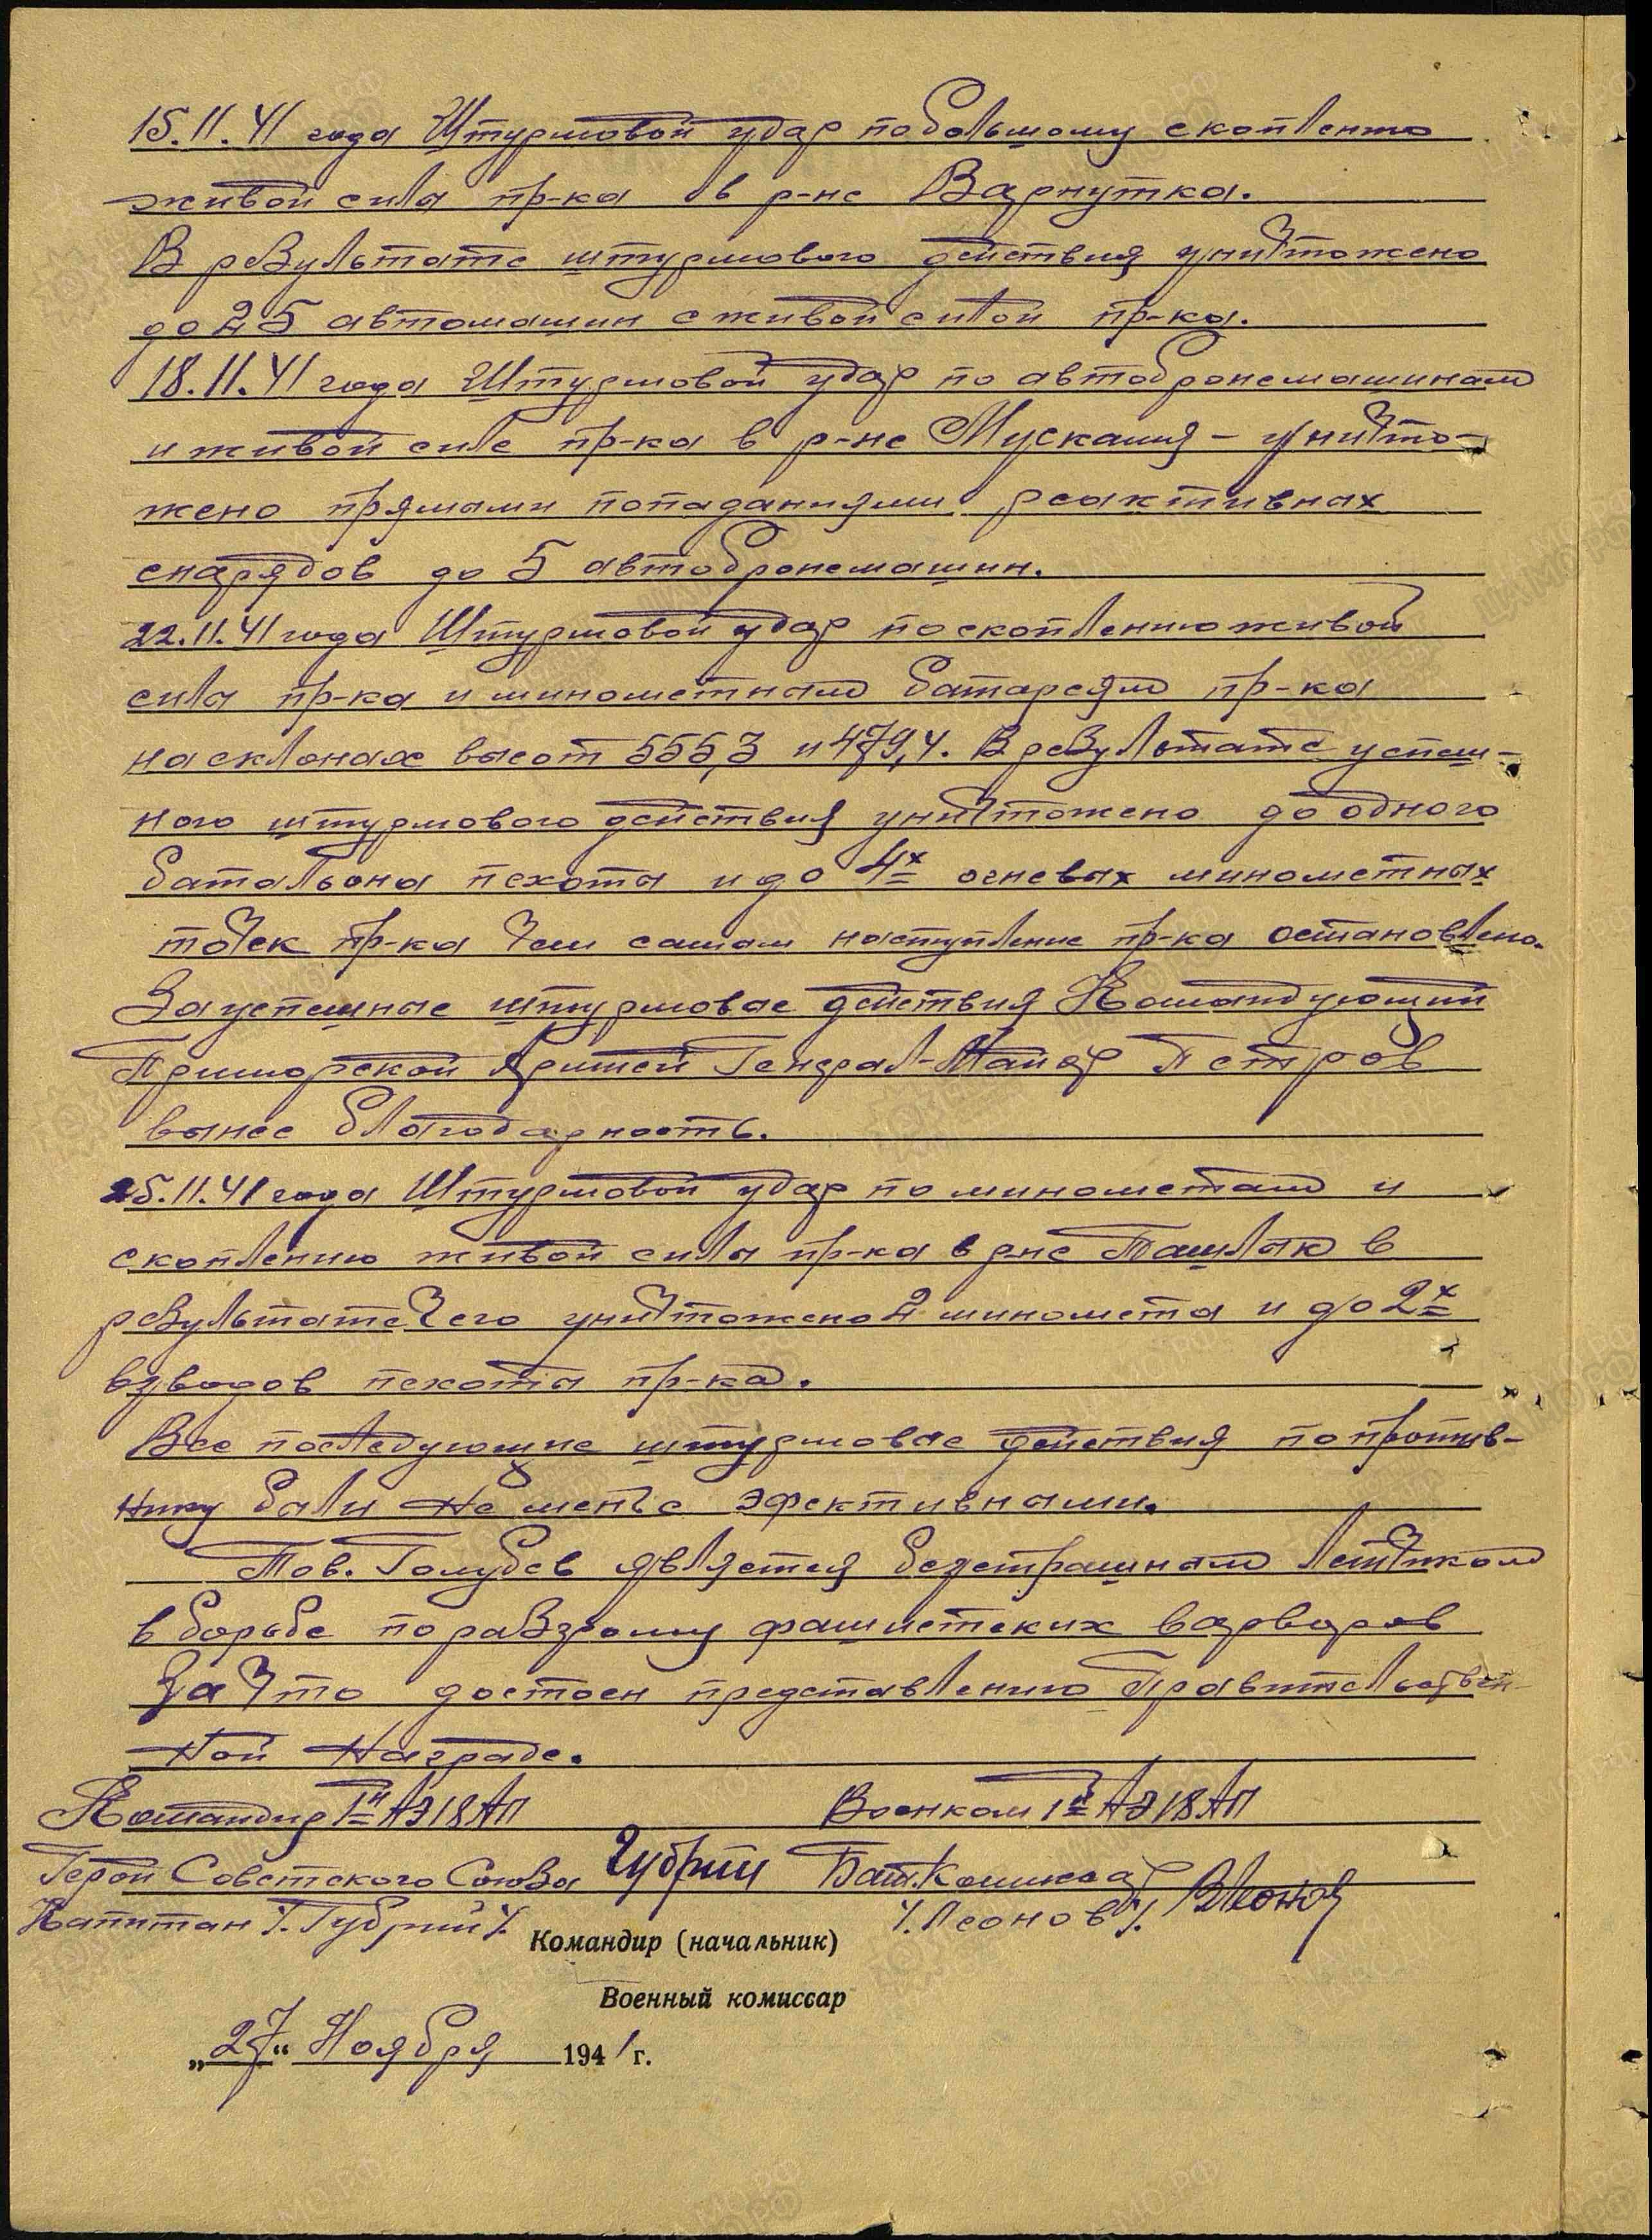 15.11.41 года Штурмовой удар по большому скоплению
живой силы пр-ка в р-не Варнутка.
В результате штурмового действия уничтожено
до 25 автомашин с живой силой пр-ка.
18.11.41 года Штурмовой удар по автобронемашинам
и живой силе пр-ка в р-не Мускамия - уничто-
жено прямыми попаданиями реактивных
снарядов до 5 автобронемашин.
22.11.41 года Штурмовой удар по скоплению живой
силы пр-ка и минометным батареям пр-ка
на склонах высот 555,3 и 479,4. В результате успеш-
ного штурмового действия уничтожено до одного
батальона пехоты и до 4х огневых минометных
точек пр-ка Чем самым наступление пр-ка остановлено.
За успешные штурмовые действия Командующий
Приморской Армией Генерал-Майор Петров
вынес благодарность.
25.11.41 года Штурмовой удар по минометам и
скоплению живой силы пр-ка в р-не Ташлык в
результате чего уничтожено 2 миномета и до 2х
взводов пехоты пр-ка.
Все последующие штурмовые действия по против-
нику были не менее эфективными.
Тов. Голубев является безстрашным летчиком
в борьбе по разгрому фашистских варваров
За что достоен представлению Правительствен-
ной Награде.
Командир 1й АЭ 18 АП Военком 1й АЭ 18 АП
Герой Советского Союза Губрий Бат. Комиссар
Капитан /. Губрий /. /. Леонов /. Леонов
Командир (начальник)
Военный комиссар
„27“ Ноября 1941 г.